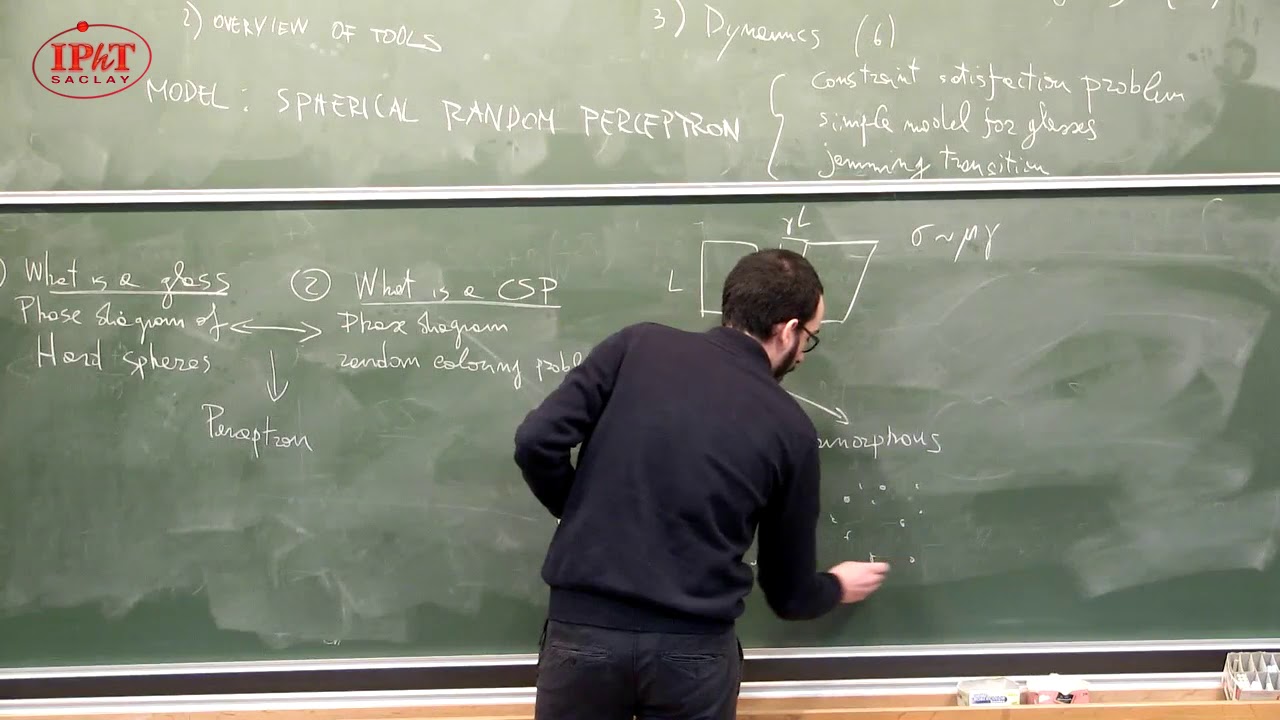 IPhT
SACLAY
2) OVERVIEW OF TOOLS
3) Dynamics (6)
MODEL: SPHERICAL RANDOM PERCEPTRON
constraint satisfaction problem
simple model for glasses
jamming transition
) What is a glass
Phase diagram of
Hard spheres
② What is a CSP
Phase diagram
random coloring probl
Perceptron
γL
L
σ ~ μγ
amorphous